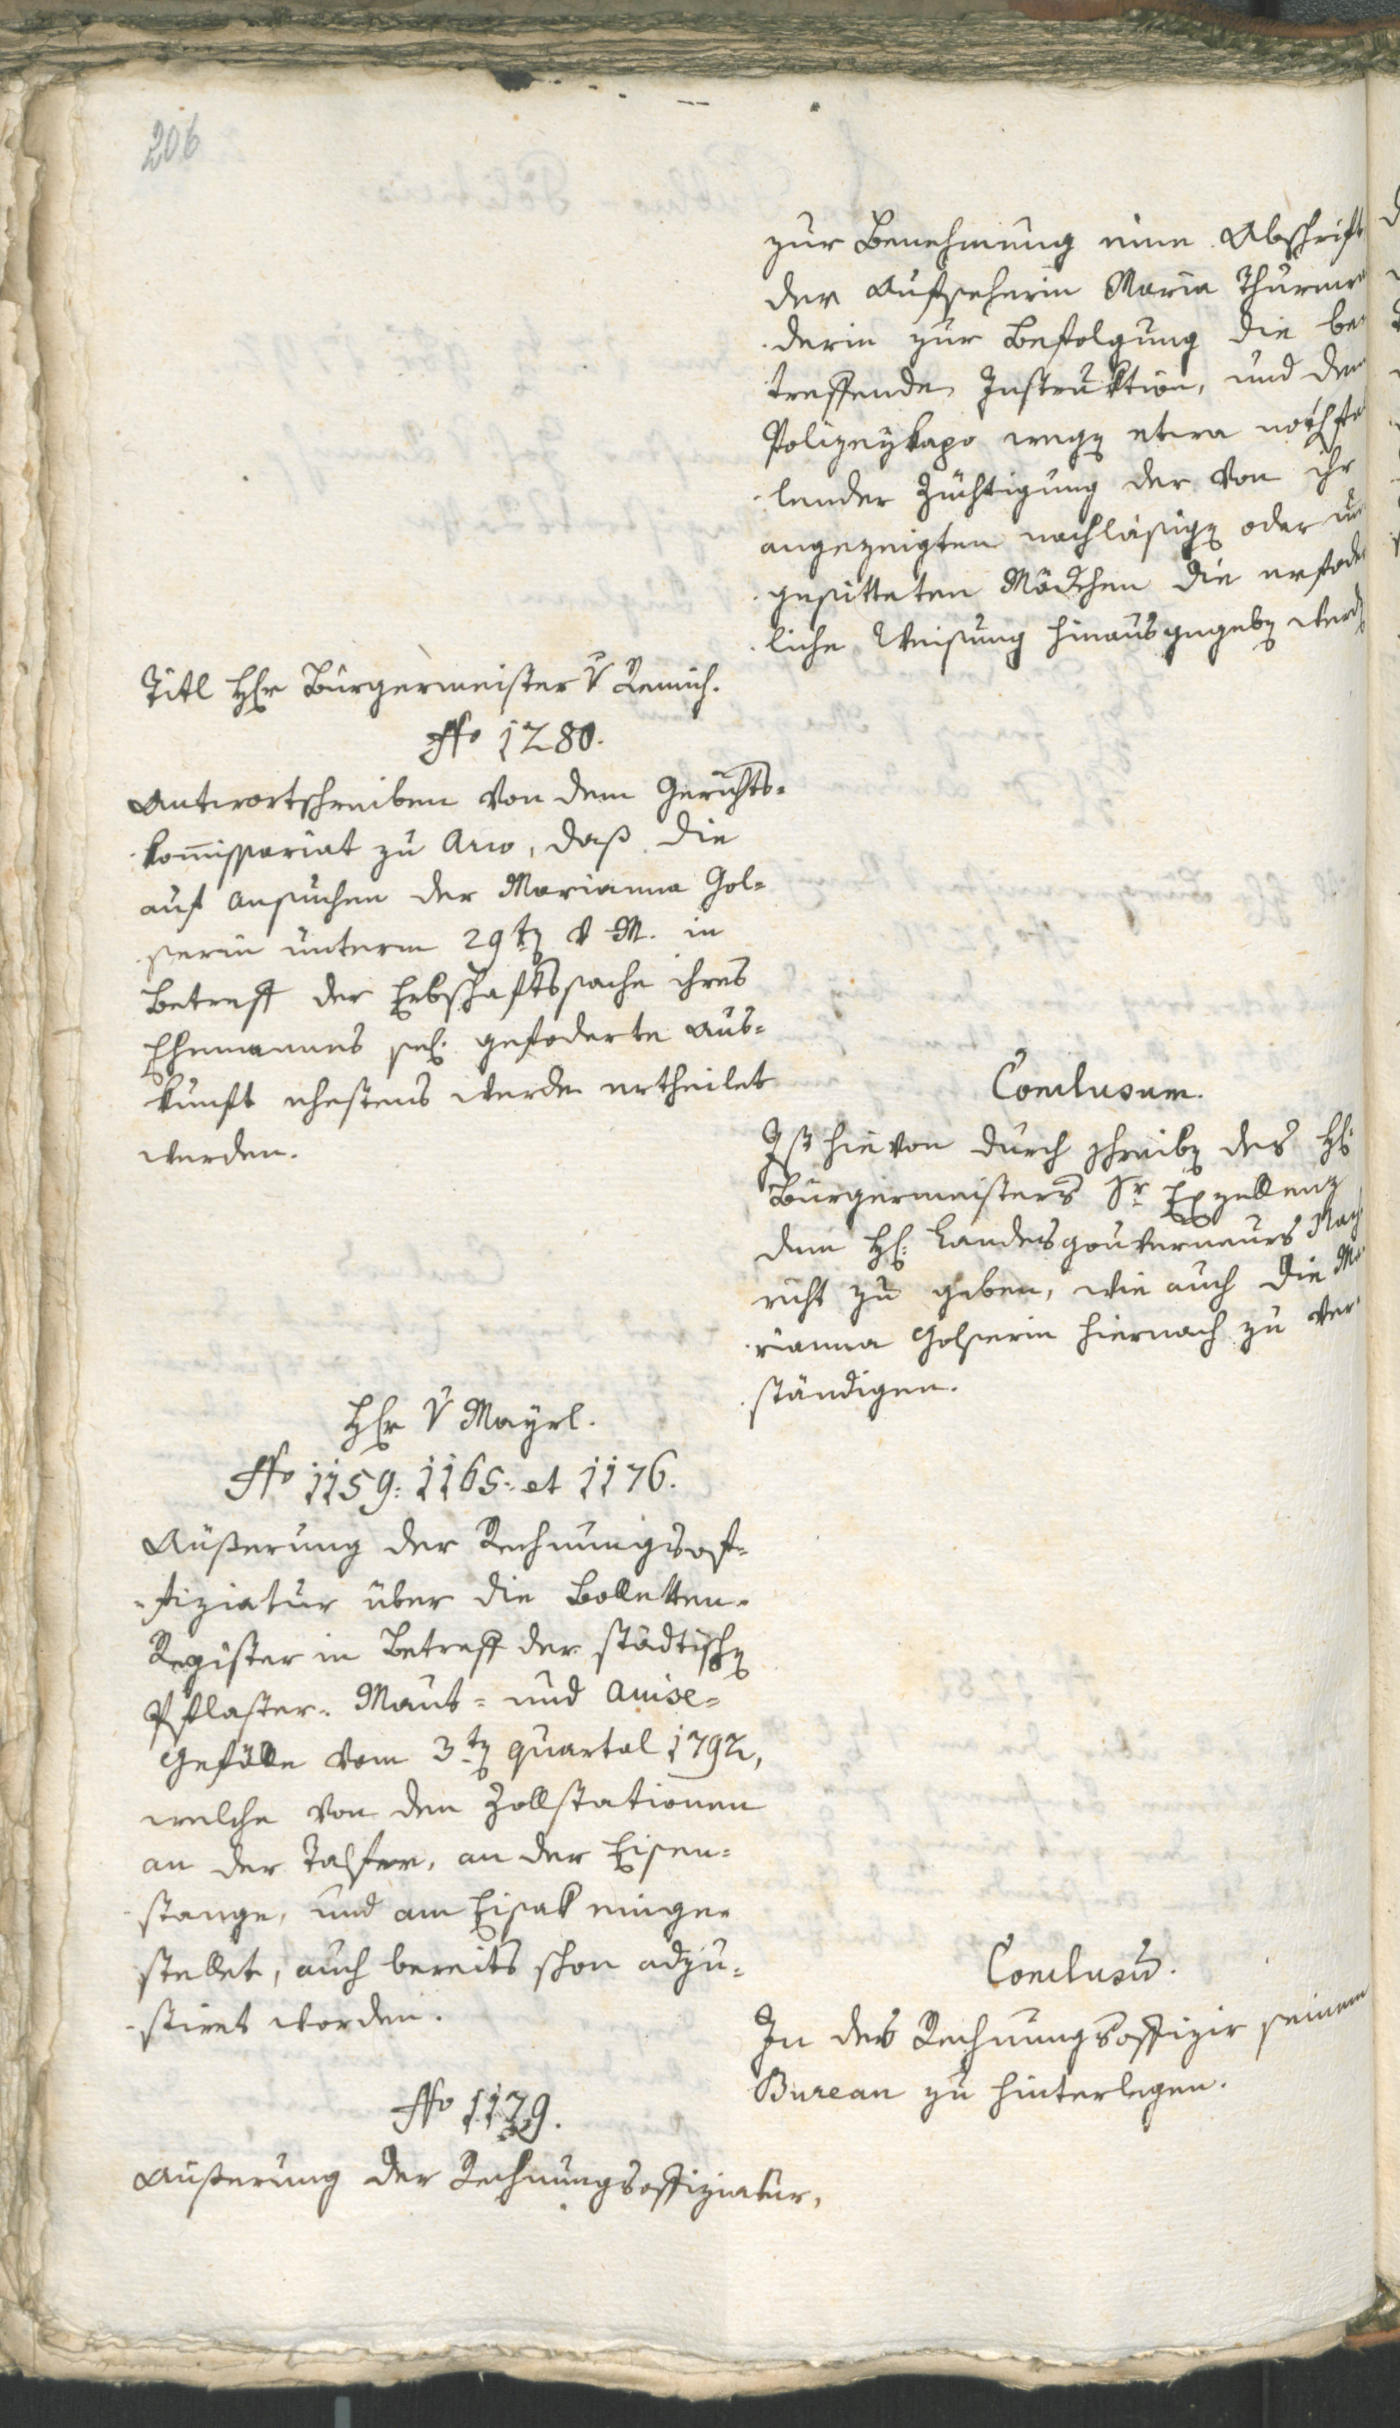 206
zur Benehmung eine Abschrift
der Aufseherin Maria Thurner
derin zur Befolgung die be
treffende Instruktion, und dem
Polizeykapo wegen etwa noth
lender Züchtigung der von ihr
angezeigten nachläßigen oder un
gesitteten Mädchen die erfoder
liche Weisung hinausgegeben werden
Titl Herr Bürgermeister v Remich.
No 1280.
Antwortschreiben von dem Gerichts-
kommissariat zu Arco, daß die
auf Ansuchen der Marianna Gol-
serin unterm 29ten v M. in
Betreff der Erbschaftssache ihres
Ehemannes sel. gefoderte Aus-
kunft ehestens werde ertheilet
werden.
Conclusum.
Ist hievon durch Schreiben des H:
Bürgermeisters Sr Exzellenz
dem H: Landesgouverneurs Nach
richt zu geben, wie auch die Ma
rianna Golserin hiernach zu ver
ständigen.
Herr v Mayrl.
No 1159: 1165: et 1176.
Äußerung der Rechnungsof-
fiziatur über die Bolletten-
Register in Betreff der städtischen
Pflaster- Maut- und Avise-
Gefälle vom 3ten quartal 1792,
welche von den Zollstationen
an der Talfer, an der Eisen-
stange, und am Eisak einge-
stellet, auch bereits schon adju-
stiret worden.
Conclusum.
In des Rechnungsoffizir seinem
Bureau zu hinterlegen.
No 1179.
Äußerung der Rechnungsoffiziatur,